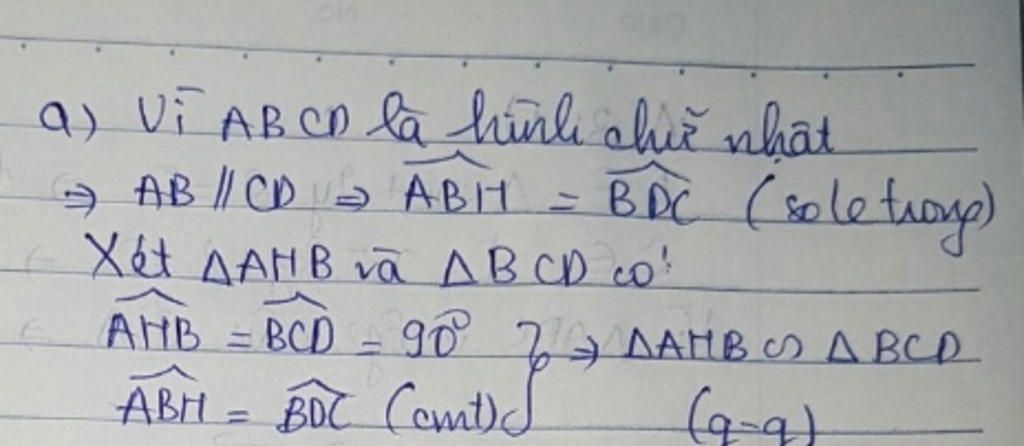 a) Vì ABCD là hình chữ nhật
⇒ AB // CD ⇒ \widehat{ABH} = \widehat{BDC} (so le trong)
Xét ΔAHB và ΔBCD có:
\widehat{AHB} = \widehat{BCD} = 90° } ⇒ ΔAHB ∽ ΔBCD
\widehat{ABH} = \widehat{BDC} (cmt) (g-g)